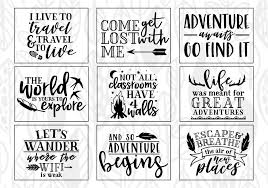 I LIVE TO
travel
& TRAVEL
to live
COME get
LOST with
ME
ADVENTURE
awaits
GO FIND IT
THE
World
IS YOURS TO
explore
NOT ALL
classrooms
HAVE
4
walls
life
WAS MEANT FOR
GREAT
ADVENTURES
LET'S
WANDER
where the
WIFI
IS weak
AND SO
ADVENTURE
begins
ESCAPE &
BREATHE
the air of
new
PLACES